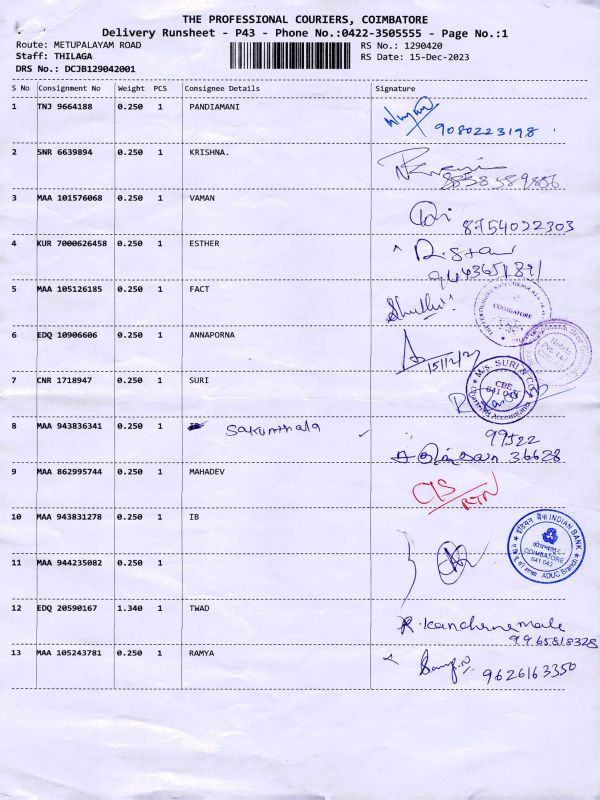 THE PROFESSIONAL COURIERS, COIMBATORE
Delivery Runsheet - P43 - Phone No.:0422-3505555 - Page No.:1
Route: METUPALAYAM ROAD RS No.: 1290420
Staff: THILAGA RS Date: 15-Dec-2023
DRS No.: DCJB129042001
S No Consignment No Weight PCS Consignee Details Signature
1 TNJ 9664188 0.250 1 PANDIAMANI
9080223198
2 SNR 6639894 0.250 1 KRISHNA.
3 MAA 101576068 0.250 1 VAMAN
8754022303
4 KUR 7000626458 0.250 1 ESTHER
5 MAA 105126185 0.250 1 FACT
COIMBATORE
6 EDQ 10906606 0.250 1 ANNAPORNA
15/12/23
7 CNR 1718947 0.250 1 SURI
M/s. SURI & CO.
CBE
641 043
Chartered Accountants
8 MAA 943836341 0.250 1 Sakunthala
99522
36628
9 MAA 862995744 0.250 1 MAHADEV
RTN
10 MAA 943831278 0.250 1 IB
इंडियन बैंक INDIAN BANK
COIMBATORE
641 043
ADUC Branch
11 MAA 944235082 0.250 1
12 EDQ 20590167 1.340 1 TWAD
9965818328
13 MAA 105243781 0.250 1 RAMYA
9626163350